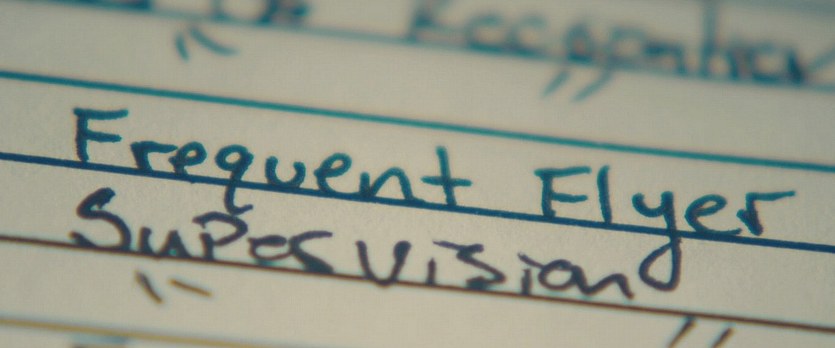 Recognition
Frequent Flyer
Supervision